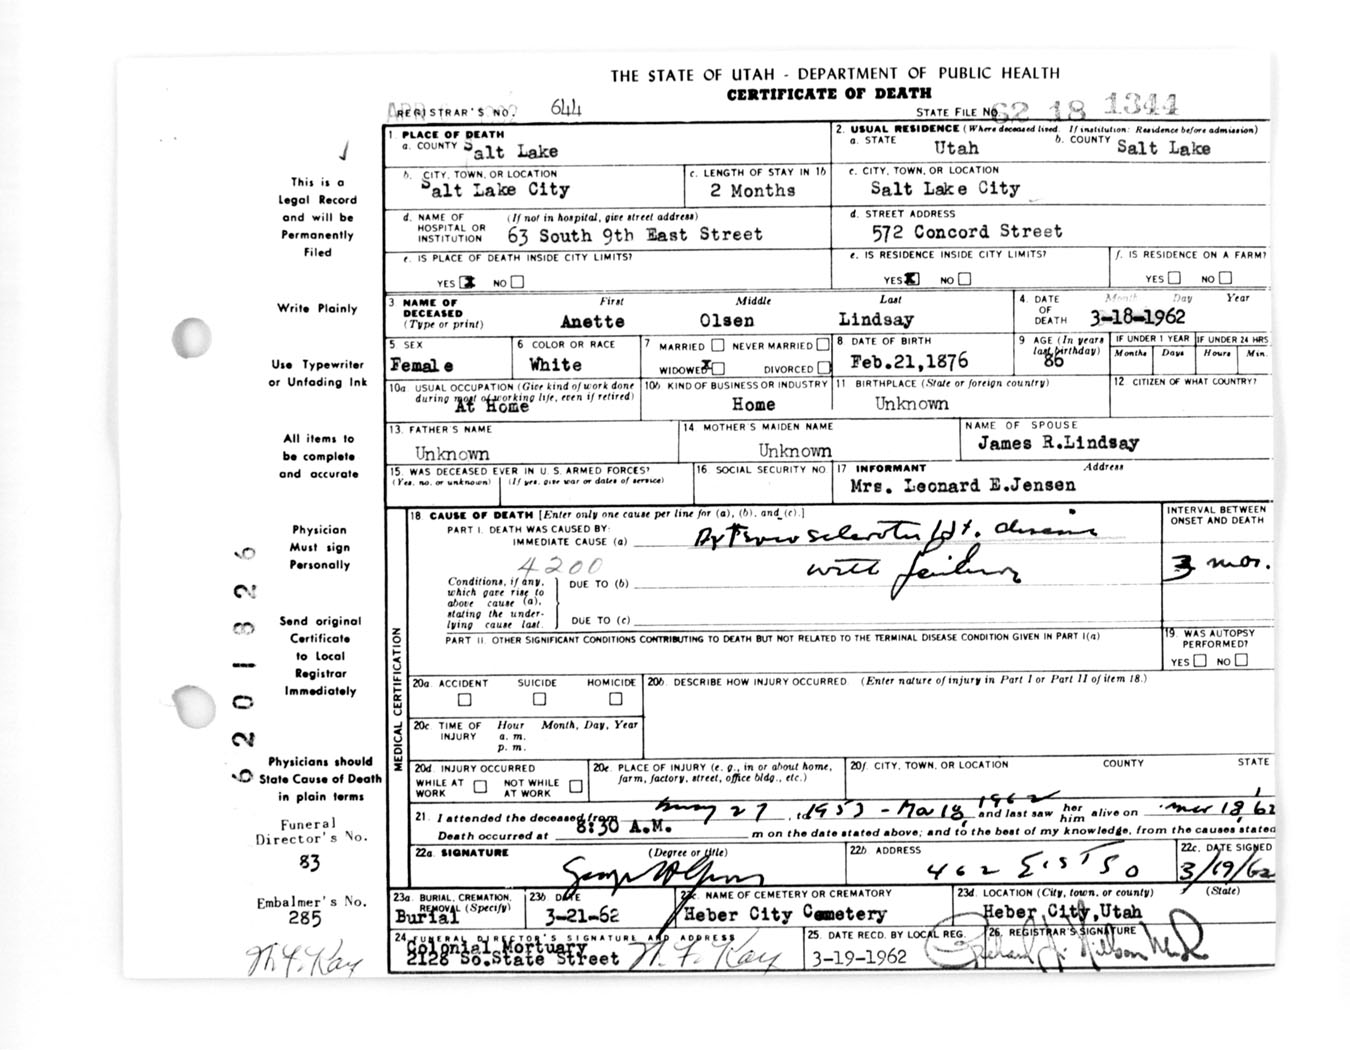 THE STATE OF UTAH - DEPARTMENT OF PUBLIC HEALTH
CERTIFICATE OF DEATH
REGISTRAR'S NO. 644
STATE FILE NO. 62 18 1344
1. PLACE OF DEATH
a. COUNTY Salt Lake
2. USUAL RESIDENCE (Where deceased lived. If institution: Residence before admission)
a. STATE Utah b. COUNTY Salt Lake
b. CITY, TOWN, OR LOCATION
Salt Lake City
c. LENGTH OF STAY IN 1b
2 Months
c. CITY, TOWN, OR LOCATION
Salt Lake City
d. NAME OF HOSPITAL OR INSTITUTION (If not in hospital, give street address)
63 South 9th East Street
d. STREET ADDRESS
572 Concord Street
e. IS PLACE OF DEATH INSIDE CITY LIMITS?
YES X NO
e. IS RESIDENCE INSIDE CITY LIMITS?
YES X NO
f. IS RESIDENCE ON A FARM?
YES NO
3 NAME OF DECEASED (Type or print)
First Middle Last
Anette Olsen Lindsay
4. DATE OF DEATH Month Day Year
3-18-1962
5 SEX
Female
6 COLOR OR RACE
White
7 MARRIED NEVER MARRIED
WIDOWED X DIVORCED
8 DATE OF BIRTH
Feb.21,1876
9 AGE (In years last birthday)
86
IF UNDER 1 YEAR
Months Days
IF UNDER 24 HRS
Hours Min.
10a USUAL OCCUPATION (Give kind of work done during most of working life, even if retired)
At Home
10b KIND OF BUSINESS OR INDUSTRY
Home
11 BIRTHPLACE (State or foreign country)
Unknown
12 CITIZEN OF WHAT COUNTRY?
13. FATHER'S NAME
Unknown
14 MOTHER'S MAIDEN NAME
Unknown
NAME OF SPOUSE
James R.Lindsay
15. WAS DECEASED EVER IN U.S. ARMED FORCES?
(Yes, no, or unknown) (If yes, give war or dates of service)
16 SOCIAL SECURITY NO
17 INFORMANT Address
Mrs. Leonard E.Jensen
MEDICAL CERTIFICATION
18 CAUSE OF DEATH [Enter only one cause per line for (a), (b), and (c).]
INTERVAL BETWEEN ONSET AND DEATH
PART I. DEATH WAS CAUSED BY:
IMMEDIATE CAUSE (a) Arteriosclerotic Ht. disease
4200 with failure
3 mos.
Conditions, if any, which gave rise to above cause (a), stating the underlying cause last.
DUE TO (b)
DUE TO (c)
PART II. OTHER SIGNIFICANT CONDITIONS CONTRIBUTING TO DEATH BUT NOT RELATED TO THE TERMINAL DISEASE CONDITION GIVEN IN PART I(a)
19. WAS AUTOPSY PERFORMED?
YES NO
20a. ACCIDENT SUICIDE HOMICIDE
20b. DESCRIBE HOW INJURY OCCURRED. (Enter nature of injury in Part I or Part II of item 18.)
20c TIME OF INJURY Hour Month, Day, Year
a. m.
p. m.
20d. INJURY OCCURRED
WHILE AT WORK NOT WHILE AT WORK
20e. PLACE OF INJURY (e. g., in or about home, farm, factory, street, office bldg., etc.)
20f. CITY, TOWN, OR LOCATION COUNTY STATE
21. I attended the deceased from 27, 1953 - Mar 18, 1962 and last saw her him alive on Mar 18, 62
Death occurred at 8:30 A.M. m on the date stated above; and to the best of my knowledge, from the causes stated
22a. SIGNATURE (Degree or title)
22b ADDRESS
462 East So
22c. DATE SIGNED
3/19/62
23a. BURIAL, CREMATION, REMOVAL (Specify)
Burial
23b DATE
3-21-62
23c NAME OF CEMETERY OR CREMATORY
Heber City Cemetery
23d. LOCATION (City, town, or county) (State)
Heber City,Utah
24 FUNERAL DIRECTOR'S SIGNATURE AND ADDRESS
Colonial Mortuary
2128 So.State Street W. F. Kay
25. DATE RECD. BY LOCAL REG.
3-19-1962
26. REGISTRAR'S SIGNATURE
This is a
Legal Record
and will be
Permanently
Filed
Write Plainly
Use Typewriter
or Unfading Ink
All items to
be complete
and accurate
Physician
Must sign
Personally
Send original
Certificate
to Local
Registrar
Immediately
Physicians should
State Cause of Death
in plain terms
Funeral
Director's No.
83
Embalmer's No.
285
W. F. Kay